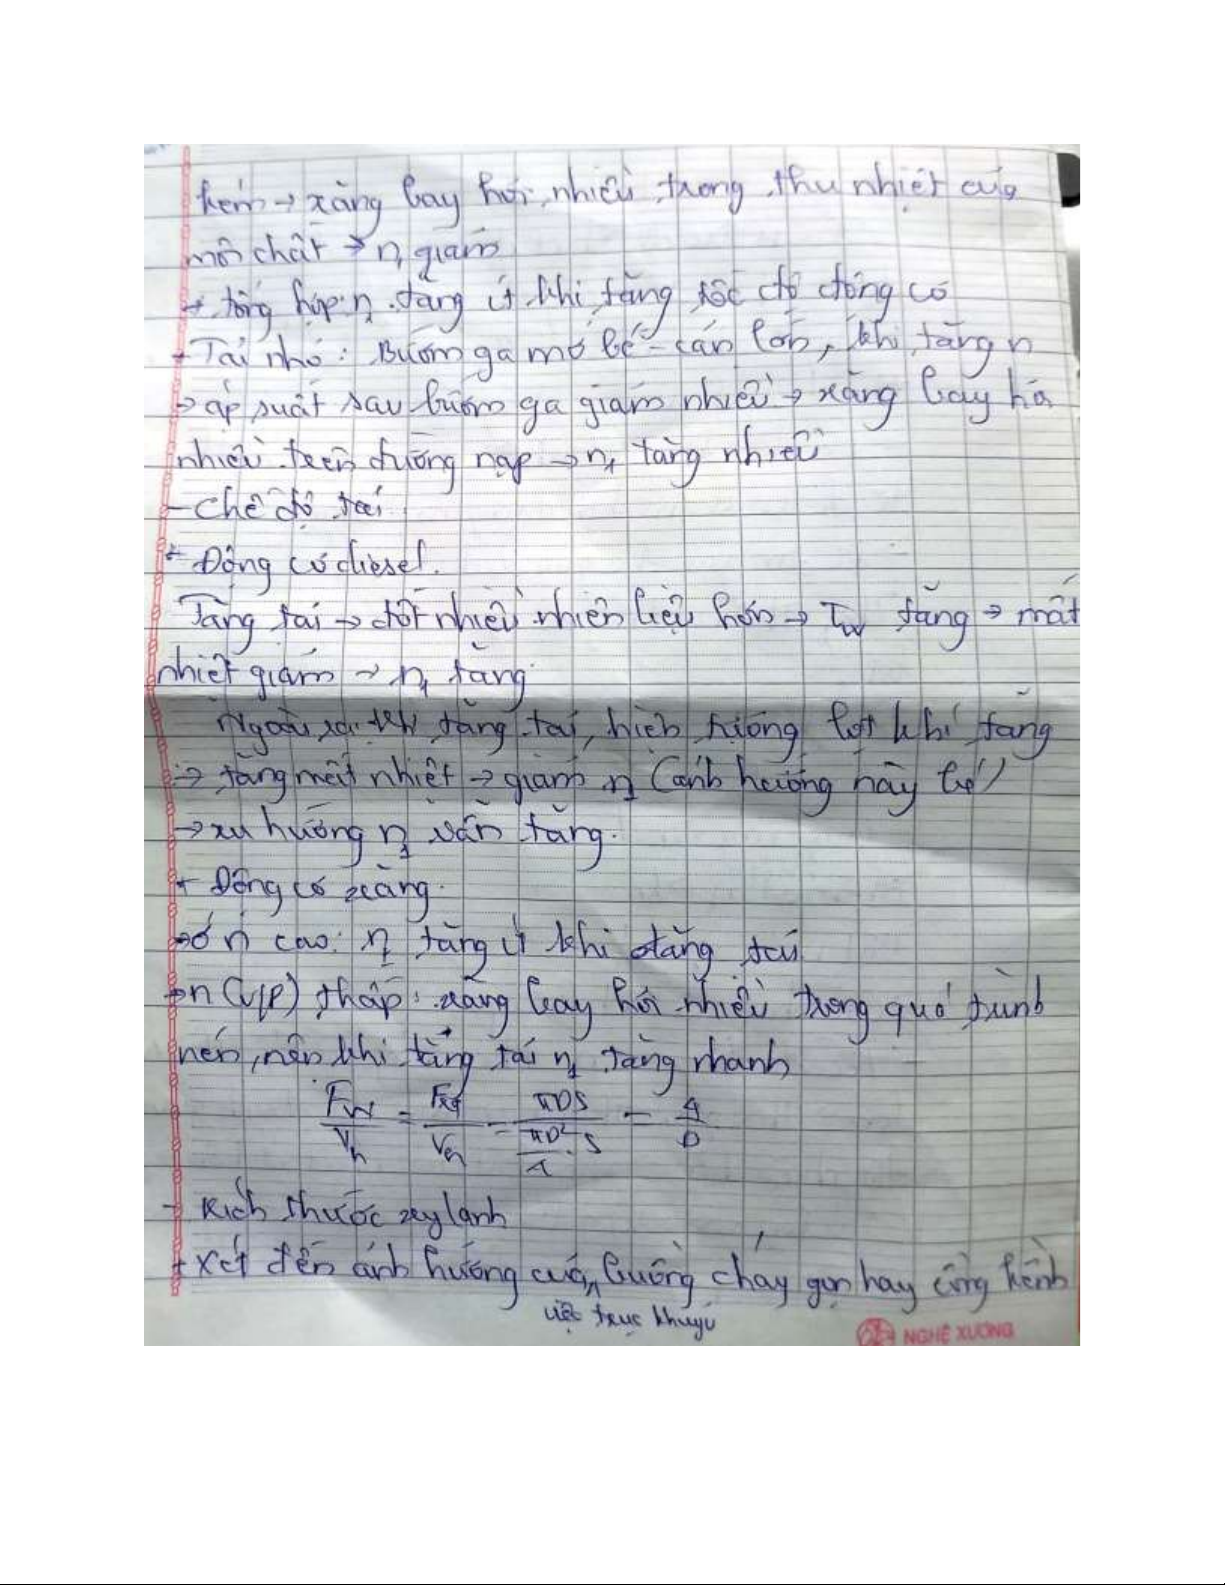 kém → xăng bay hơi nhiều trong thu nhiệt của
môi chất → n₁ giảm
+ tổng hợp: n₁ tăng ít khi tăng tốc độ động cơ
+ Tải nhỏ: Bướm ga mở bé - cản lớn, khi tăng n
→ áp suất sau bướm ga giảm nhiều → xăng bay hơ
nhiều trên đường nạp → n₁ tăng nhiều
- Chế độ tải
+ Động cơ diesel.
Tăng tải → đốt nhiều nhiên liệu hơn → Tw tăng → mất
nhiệt giảm → n₁ tăng
Ngoài ra khi tăng tải, hiện tượng lọt khí tăng
→ tăng mất nhiệt → giảm n₁ (ảnh hưởng này bé)
→ xu hướng n₁ vẫn tăng.
+ Động cơ xăng.
→ ở n cao: n₁ tăng ít khi tăng tải
→ n (v/p) thấp: xăng bay hơi nhiều trong quá trình
nén, nên khi tăng tải n₁ tăng nhanh
Fw/Vh = Fxq/Vh = πDS/(πD²/4 · S) = 4/D
- Kích thước xylanh
+ Xét đến ảnh hưởng của buồng cháy gọn hay cồng kềnh
việc trục khuỷu
NGHÊ XƯƠNG